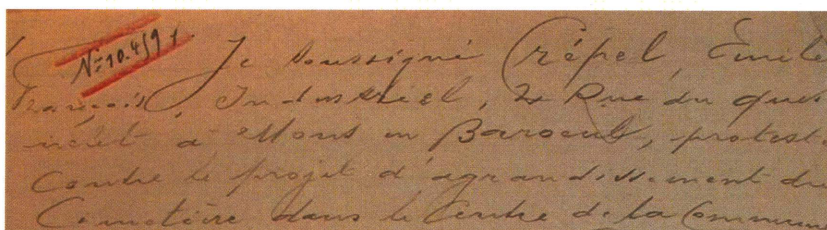 N° 10.459 1
Je soussigné Crépel, Emile
François, Industriel, 2 Rue du ques
nelet à Mons en Baroeul, proteste
Contre le projet d'agrandissement du
Cimetière dans le Centre de la Commune